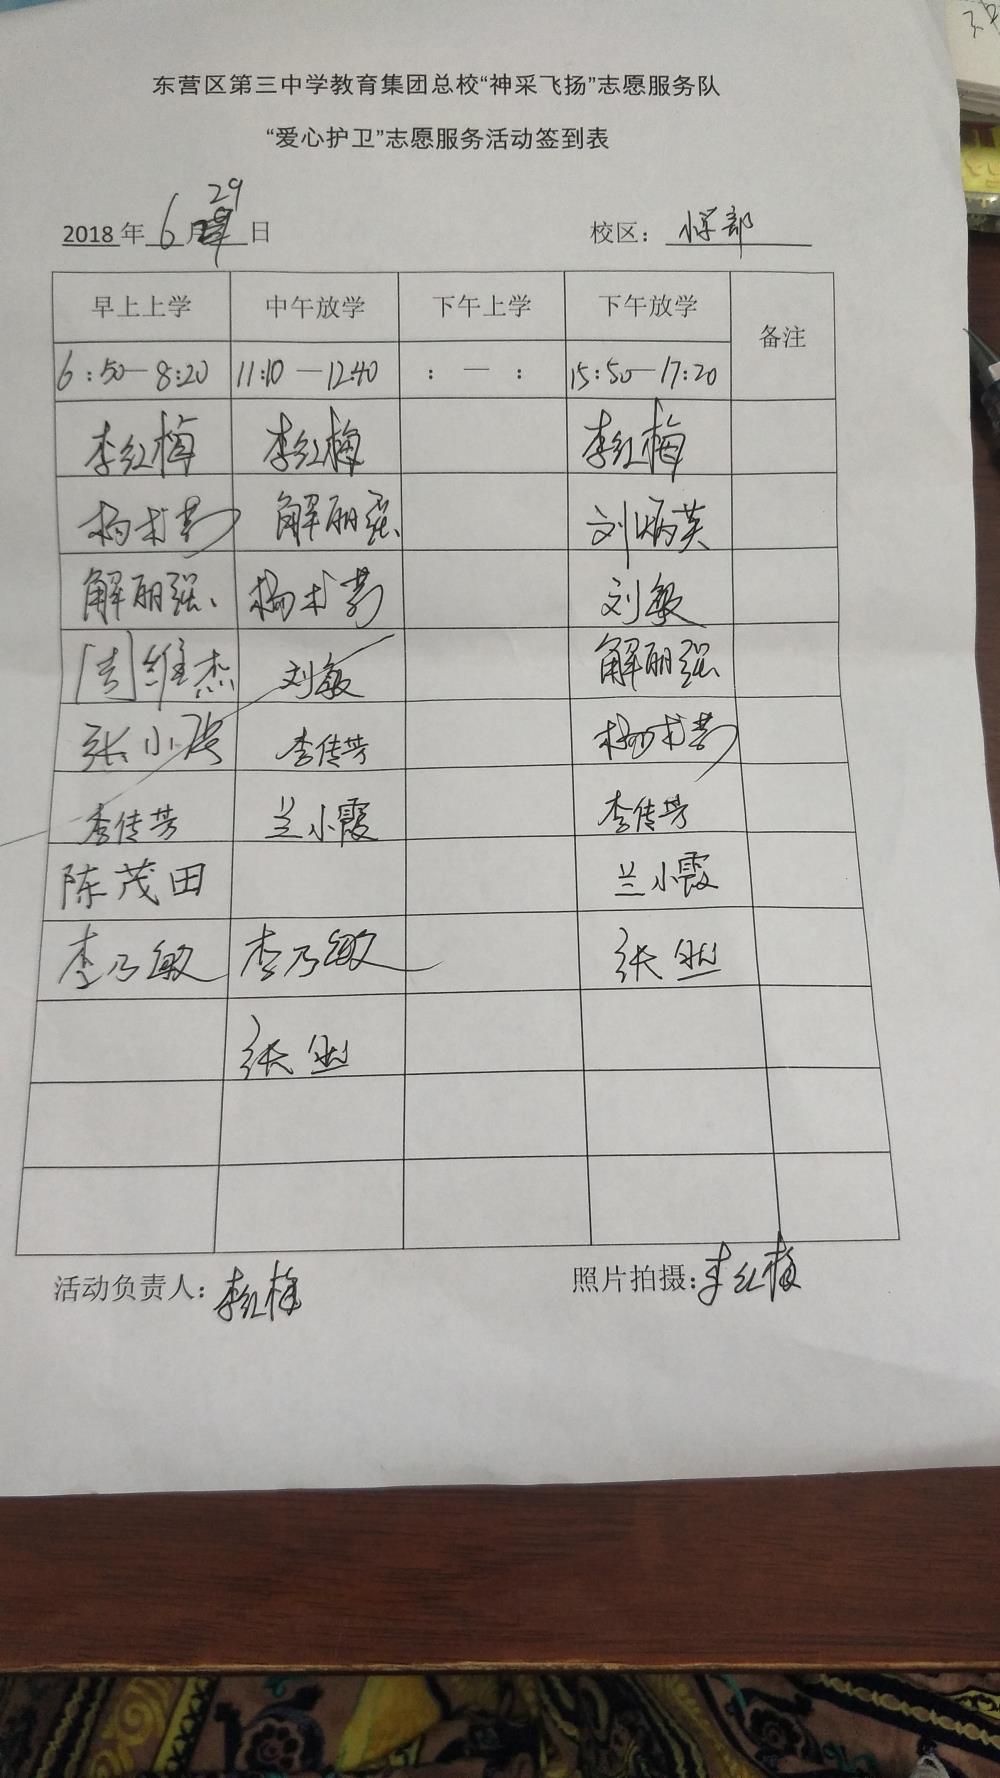 东营区第三中学教育集团总校“神采飞扬”志愿服务队
“爱心护卫”志愿服务活动签到表
2018年 6月29日 校区：小学部
早上上学 中午放学 下午上学 下午放学 备注
6:50—8:20 11:10—12:40 : — : 15:50—17:20
李红梅 李红梅 李红梅
杨术菊 解丽强 刘炳英
解丽强 杨术菊 刘敏
维杰 刘敏 解丽强
张小 李传芳 杨术菊
李传芳 兰小霞 李传芳
陈茂田 兰小霞
李乃敏 李乃敏 张
张
活动负责人：李红梅 照片拍摄：李红梅